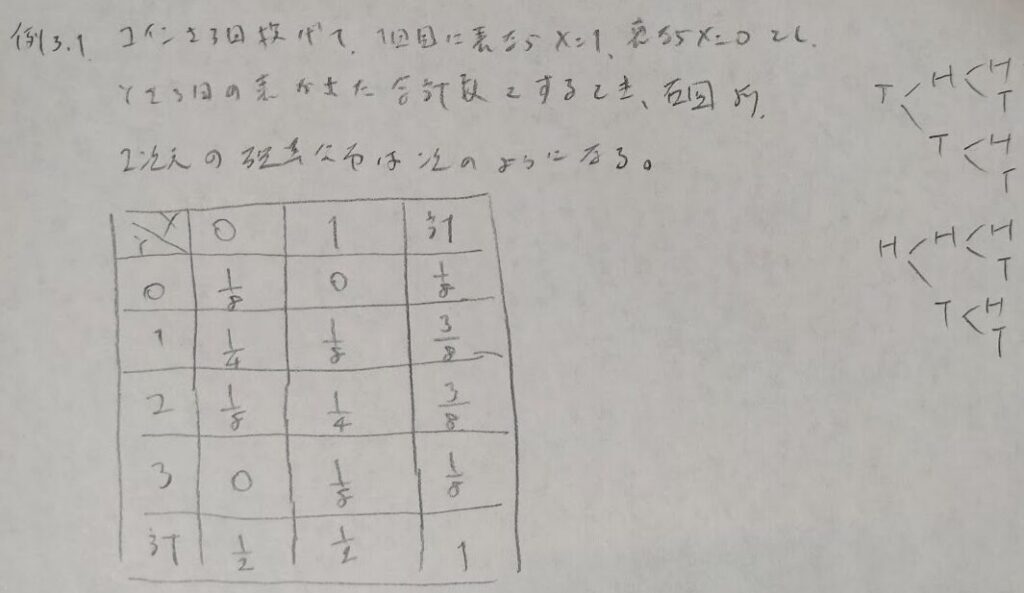 例3.1 コインを3回投げて、1回目に表なら X=1、裏なら X=0 とし、
Yを3回の表が出た合計数とするとき、右図より、
2次元の確率分布は次のようになる。
Y X 0 1 計
0 1/8 0 1/8
1 1/4 1/8 3/8
2 1/8 1/4 3/8
3 0 1/8 1/8
計 1/2 1/2 1
T H H
T
T H
T
H H H
T
T H
T